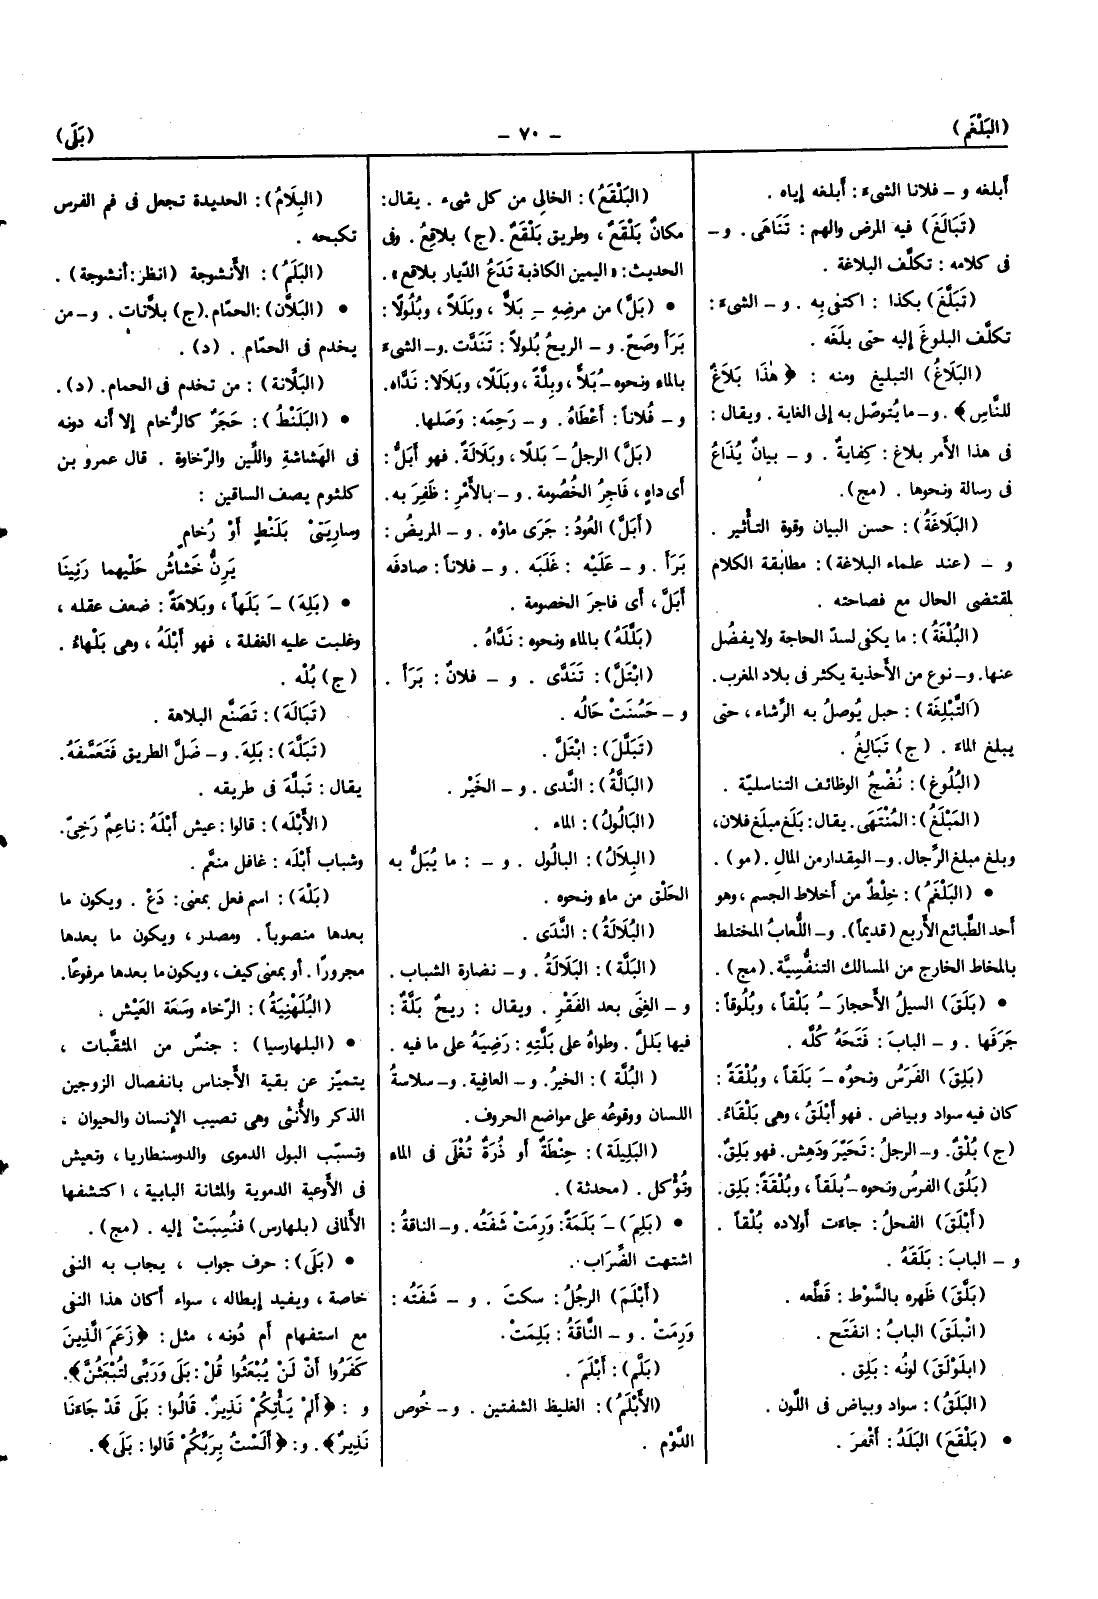 (البَلْغَم)
– ٧٠ –
(بَلَى)
أبلغه و – فلانا الشىءَ : أبلغه إياه .
(تَبَالَغَ) فيه المرض والهم : تَنَاهَى . و –
فى كلامه : تكلَّف البلاغة .
(تَبَلَّغَ) بكذا : اكتفى به . و – الشىءَ :
تكلَّف البلوغَ إليه حتى بلَغَه .
(البَلاَغُ) التبليغ ومنه : ﴿ هٰذَا بَلاَغٌ
للنَّاسِ﴾ . و – ما يُتوصّل به إلى الغاية . ويقال :
فى هذا الأمر بلاغ : كِفايةٌ . و – بيانٌ يُذَاعُ
فى رسالة ونحوها . (مج).
(البَلاَغَةُ) : حسن البيان وقوة التأْثير .
و – (عند علماء البلاغة) : مطابقة الكلام
لمقتضى الحال مع فصاحته .
(البُلْغَةُ) : ما يكفى لسدّ الحاجة ولا يفضُل
عنها. و – نوع من الأَحذية يكثر فى بلاد المغرب.
(التَّبْلِغَة) : حبل يُوصلُ به الرِّشاء ، حتى
يبلغ الماءَ . (ج) تَبَالِغُ .
(البُلُوغ) : نُضْجُ الوظائف التناسليّة .
(المَبْلَغُ) : المُنْتَهَى. يقال : بَلَغ مبلغ فلان،
وبلغ مبلغ الرِّجال. و – المِقدار من المال . (مو) .
• (البَلْغَمُ) : خِلْطٌ من أخلاط الجسم ، وهو
أحد الطَّبائع الأَربع (قديماً). و – اللُّعابُ المختلط
بالمخاط الخارج من المسالك التنفُّسِيَّة . (مج) .
• (بَلَقَ) السيلُ الأَحجارَ ـُ بَلْقاً ، وبُلُوقاً :
جَرَفَها . و – البابَ : فَتَحَهُ كُلَّه .
(بَلِقَ) الفَرَسُ ونحوُه ـَ بَلَقاً ، وبُلْقَةً :
كان فيه سواد وبياض . فهو أَبْلَقُ ، وهى بَلْقَاءُ.
(ج) بُلْقٌ. و – الرجلُ : تَحيَّرَ ودَهِش. فهو بَلِقٌ.
(بَلُق) الفرسُ ونحوه ـُ بُلقاً ، وبُلْقَةً : بَلِق.
(أَبْلَقَ) الفحلُ : جاءت أولاده بُلْقاً .
و – البابَ : بَلَقَهُ .
(بَلَّقَ) ظهره بالسَّوْط : قَطَّعه .
(انْبلَقَ) البابُ : انفَتَح .
(ابلَوْلَقَ) لونُه : بَلِق .
(البَلَقُ) : سواد وبياض فى اللَّون .
• (بَلْقَعَ) البَلَدُ : أَقْفَرَ .
(البَلْقَعُ) : الخالِى من كل شىء . يقال :
مكانٌ بَلْقَعٌ ، وطريق بَلْقَعٌ . (ج) بلاقِعُ . وفى
الحديث : « اليمين الكاذبة تَدَعُ الدِّيار بلاقع» .
• (بَلَّ) من مرضِهِ ـِ بَلاًّ ، وبَلَلاً ، وبُلُولًا :
بَرَأَ وصَحّ. و – الريحُ بُلولاً : تَنَدَّت . و – الشىءَ
بالماءِ ونحوه ـُ بَلاًّ ، وبِلَّةً ، وبَلَلًا، وبَلَالا : نَدَّاه.
و – فُلاناً : أَعْطَاهُ . و – رَحِمَه : وَصَلها.
(بَلَّ) الرجلُ ـَ بَللًا ، وبَلَالَةً. فهو أَبَلُّ :
أى داهٍ ، فَاجِرُ الخُصُومة . و – بالأَمْرِ : ظَفِرَ به .
(أَبَلَّ) العُودُ : جَرَى ماؤه . و – المريضُ :
بَرَأَ . و – عَلَيْه : غَلَبَه . و – فلاناً : صادفَه
أَبَلَّ ، أى فاجرَ الخصومة .
(بَلَّلَهُ) بالماء ونحوه : نَدَّاهُ .
(ابْتَلَّ) : تَنَدَّى . و – فلانٌ : بَرَأَ .
و – حَسُنَتْ حَالُه .
(تَبَلَّلَ) : ابْتَلَّ .
(البَالَّةُ) : النَّدى . و – الخَيْر .
(البَالُولُ) : الماء .
(البِلاَلُ) : البالُول . و – : ما يُبَلُّ به
الحَلْق من ماء ونحوه .
(البُلَالَةُ) : النَّدَى .
(البَلَّة) : البَلَالَةُ . و – نضارة الشباب .
و – الغِنَى بعد الفَقْرِ . ويقال : رِيحٌ بَلَّةٌ :
فيها بَلَلٌ . وطواهُ على بَلَّتِهِ : رَضِيَهُ على ما فيه .
(البُلَّة ) : الخيرُ . و – العافية. و – سلاسةُ
اللسان ووقوعُه على مواضع الحروف .
(البَلِيلَة) : حِنْطَةٌ أو ذُرَةٌ تُغْلَى فى الماء
وتُؤْكل . (محدثة) .
• (بَلِمَ) ـَ بَلَمَةً : وَرِمَتْ شَفَتُه . و – الناقةُ :
اشتهت الضِّرَاب .
(أَبْلَمَ) الرجُلُ : سكتَ . و – شَفَتُه :
وَرِمَتْ . و – النَّاقَةُ : بَلِمَتْ .
(بَلَّم) : أَبْلَمَ .
(الأَبْلَمُ) : الغليظ الشفتين . و – خُوص
الدَّوْم .
(البِلَامُ) : الحديدة تجعل فى فم الفرس
تكبحه .
(البَلَمُ) : الأَنشوجة (انظر : أنشوجة) .
• (البَلَّان) : الحمّام . (ج) بلَّانات . و – من
يخدم فى الحمّام . (د) .
(البَلَّانة) : من تخدم فى الحمام. (د).
• (البَلَنْطُ) : حَجَرٌ كالرُّخام إلا أنه دونه
فى الهَشاشةِ واللِّين والرّخاوة . قال عمرو بن
كلثوم يصف الساقين :
وسارِيَتىْ بَلَنْطٍ أَوْ رُخَامٍ
يَرِنُّ خَشاشُ حَلْيهما رَنِينَا
• (بَلِهَ) ـَ بَلَهاً ، وبَلاَهةً : ضعف عقله ،
وغلبت عليه الغفلة ، فهو أَبْلَهُ ، وهى بَلْهاءُ .
(ج) بُلْه .
(تَبَالَهَ) : تَصَنَّع البلاهة .
(تَبَلَّهَ) : بَلِهَ. و – ضَلَّ الطريق فَتَعَسَّفَهُ.
يقال : تَبلَّهَ فى طريقه .
(الأَبْلَه) : قالوا : عيش أَبْلَهُ : ناعِمٌ رَخِىّ.
وشباب أَبْلَه : غافل منعَّم .
(بَلْهَ) : اسم فعل بمعنى : دَعْ . ويكون ما
بعدها منصوباً . ومصدر ، ويكون ما بعدها
مجرورًا . أو بمعنى كيف ، ويكون ما بعدها مرفوعًا.
(البُلَهْنِيَةُ) : الرّخاء وسَعَة العَيْش .
• (البلهارسيا) : جنسٌ من المثقّبات ،
يتميّز عن بقية الأَجناس بانفصال الزوجين
الذكر والأُنثى وهى تصيب الإنسان والحيوان ،
وتسبّب البول الدموى والدوسنطاريا ، وتعيش
فى الأَوعية الدموية والمثانة البابية ، اكتشفها
الأَلمانى (بلهارس) فنُسِبَتْ إليه . (مج) .
• (بَلَى) : حرف جواب ، يجاب به النفى
خاصة ، ويفيد إبطاله ، سواء أكان هذا النفى
مع استفهام أم دُونه ، مثل : ﴿ زَعَمَ الَّذِينَ
كَفَرُوا أَنْ لَنْ يُبْعَثُوا قُلْ : بَلَى وَرَبِّى لَتُبْعَثُنَّ﴾.
و : ﴿ أَلَمْ يَأْتِكُمْ نَذِيرٌ . قَالُوا : بَلَى قَدْ جَاءَنَا
نَذِيرٌ﴾ . و : ﴿ أَلَسْتُ بِرَبِّكُمْ قَالُوا : بَلَى﴾ .